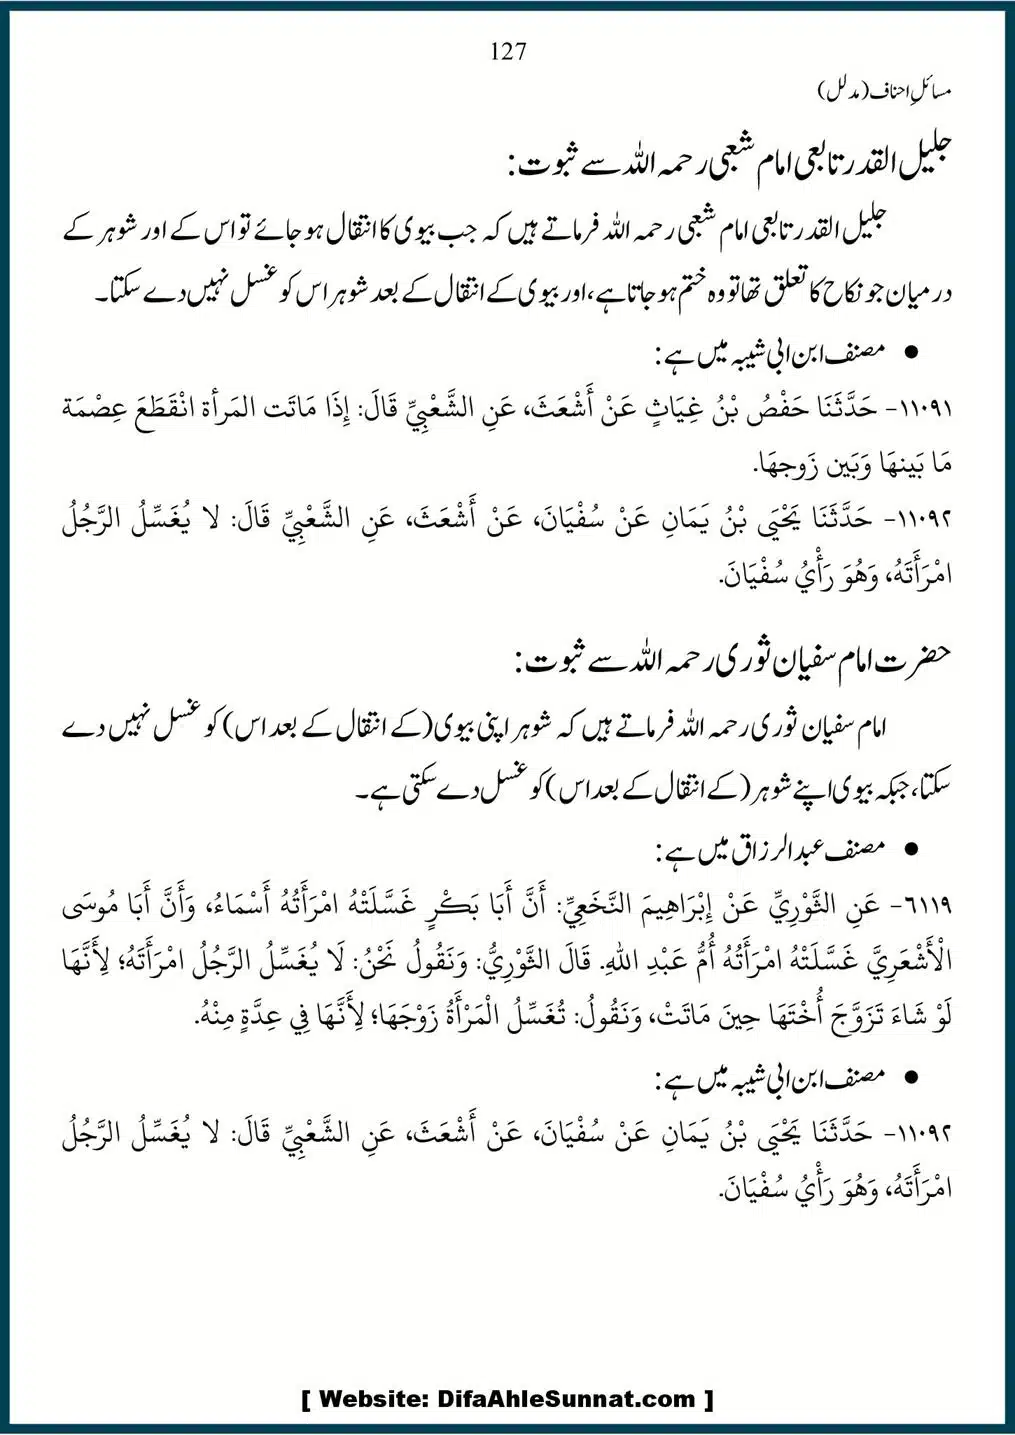 127
مسائلِ احناف (مدلل)
جلیل القدر تابعی امام شعبی رحمہ اللہ سے ثبوت:
جلیل القدر تابعی امام شعبی رحمہ اللہ فرماتے ہیں کہ جب بیوی کا انتقال ہو جائے تو اس کے اور شوہر کے
درمیان جو نکاح کا تعلق تھا تو وہ ختم ہو جاتا ہے، اور بیوی کے انتقال کے بعد شوہر اس کو غسل نہیں دے سکتا۔
• مصنف ابن ابی شیبہ میں ہے:
١١٠٩١- حَدَّثَنَا حَفْصُ بْنُ غِيَاثٍ عَنْ أَشْعَثَ، عَنِ الشَّعْبِيِّ قَالَ: إِذَا مَاتَت المَرأة انْقَطَعَ عِصْمَة
مَا بَينهَا وَبَين زَوجهَا.
١١٠٩٢- حَدَّثَنَا يَحْيَى بْنُ يَمَانٍ عَنْ سُفْيَانَ، عَنْ أَشْعَثَ، عَنِ الشَّعْبِيِّ قَالَ: لا يُغَسِّلُ الرَّجُلُ
امْرَأَتَهُ، وَهُوَ رَأْيُ سُفْيَانَ.
حضرت امام سفیان ثوری رحمہ اللہ سے ثبوت:
امام سفیان ثوری رحمہ اللہ فرماتے ہیں کہ شوہر اپنی بیوی (کے انتقال کے بعد اس) کو غسل نہیں دے
سکتا، جبکہ بیوی اپنے شوہر (کے انتقال کے بعد اس) کو غسل دے سکتی ہے۔
• مصنف عبد الرزاق میں ہے:
٦١١٩- عَنِ الثَّوْرِيِّ عَنْ إِبْرَاهِيمَ النَّخَعِيِّ: أَنَّ أَبَا بَكْرٍ غَسَّلَتْهُ امْرَأَتُهُ أَسْمَاءُ، وَأَنَّ أَبَا مُوسَى
الْأَشْعَرِيَّ غَسَّلَتْهُ امْرَأَتُهُ أُمُّ عَبْدِ اللهِ. قَالَ الثَّوْرِيُّ: وَنَقُولُ نَحْنُ: لَا يُغَسِّلُ الرَّجُلُ امْرَأَتَهُ؛ لِأَنَّهَا
لَوْ شَاءَ تَزَوَّجَ أُخْتَهَا حِينَ مَاتَتْ، وَنَقُولُ: تُغَسِّلُ الْمَرْأَةُ زَوْجَهَا؛ لِأَنَّهَا فِي عِدَّةٍ مِنْهُ.
• مصنف ابن ابی شیبہ میں ہے:
١١٠٩٢- حَدَّثَنَا يَحْيَى بْنُ يَمَانٍ عَنْ سُفْيَانَ، عَنْ أَشْعَثَ، عَنِ الشَّعْبِيِّ قَالَ: لا يُغَسِّلُ الرَّجُلُ
امْرَأَتَهُ، وَهُوَ رَأْيُ سُفْيَانَ.
[ Website: DifaAhleSunnat.com ]